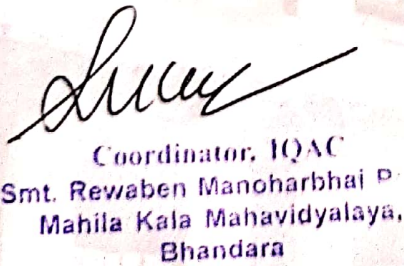 Coordinator, IQAC
Smt. Rewaben Manoharbhai P
Mahila Kala Mahavidyalaya,
Bhandara